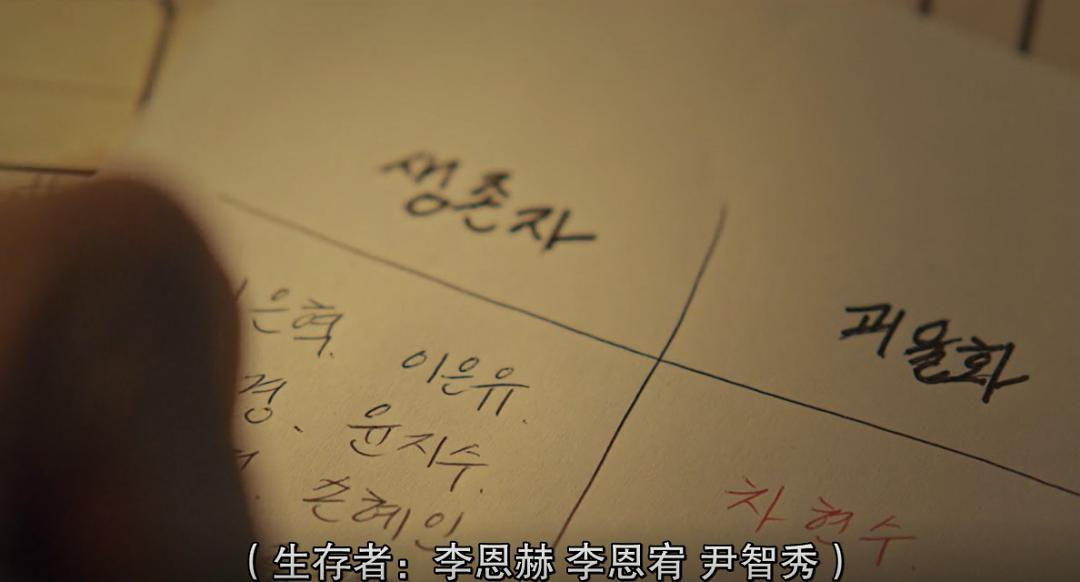 생존자
괴물화
은혁. 이은유.
경. 윤지수.
손혜인
차현수.
(生存者：李恩赫 李恩宥 尹智秀)